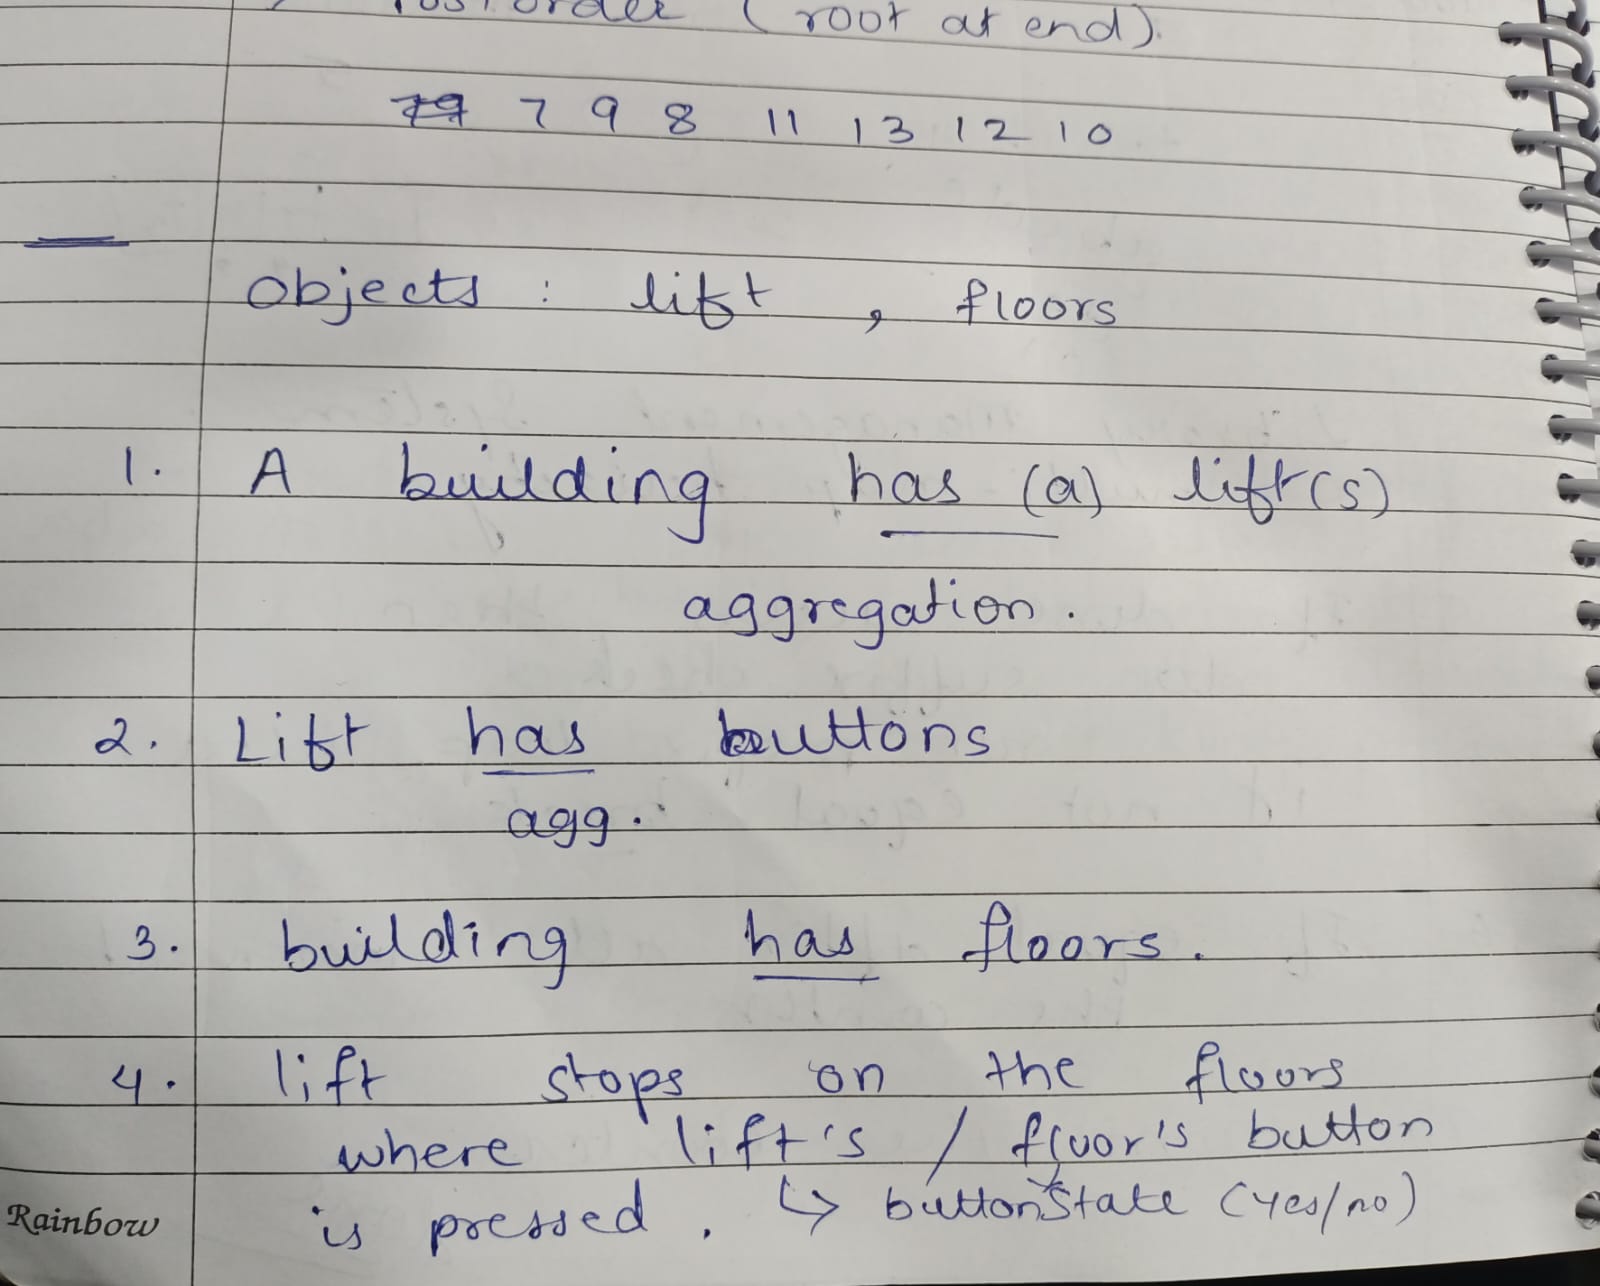 Postorder (root at end).
7 9 8 11 13 12 10
Objects : lift , floors
1. A building has (a) lift(s)
aggregation.
2. Lift has buttons
agg.
3. building has floors.
4. lift stops on the floors
where lift's / floor's button
is pressed. ↳ buttonState (Yes/no)
Rainbow